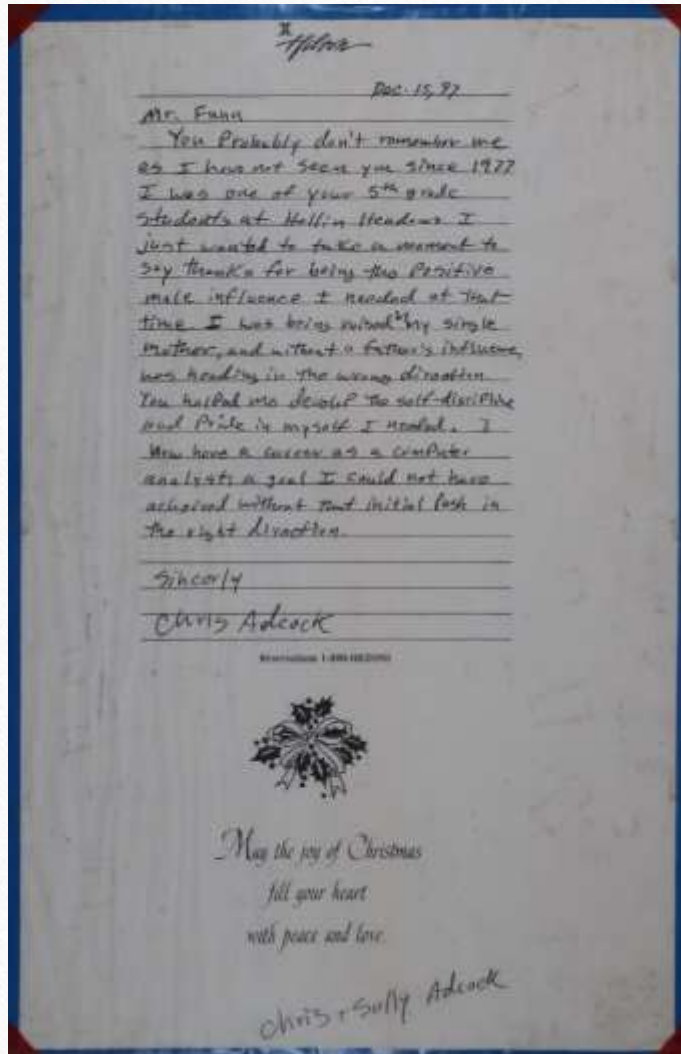 Hilton
Dec. 15, 97
Mr. Funn
You Probably don't remember me
as I have not seen you since 1977
I was one of your 5th grade
students at Hollin Meadows I
just wanted to take a moment to
say thanks for being the Positive
male influence I needed at that
time. I was being raised by my single
mother, and without a father's influence,
was heading in the wrong direction
You helped me develop the self-discipline
and Pride in myself I needed. I
Now have a career as a computer
analyst; a goal I could not have
acheived without that initial Push in
the right direction.
Sincerly
Chris Adcock
Reservations
May the joy of Christmas
fill your heart
with peace and love.
Chris + Sally Adcock